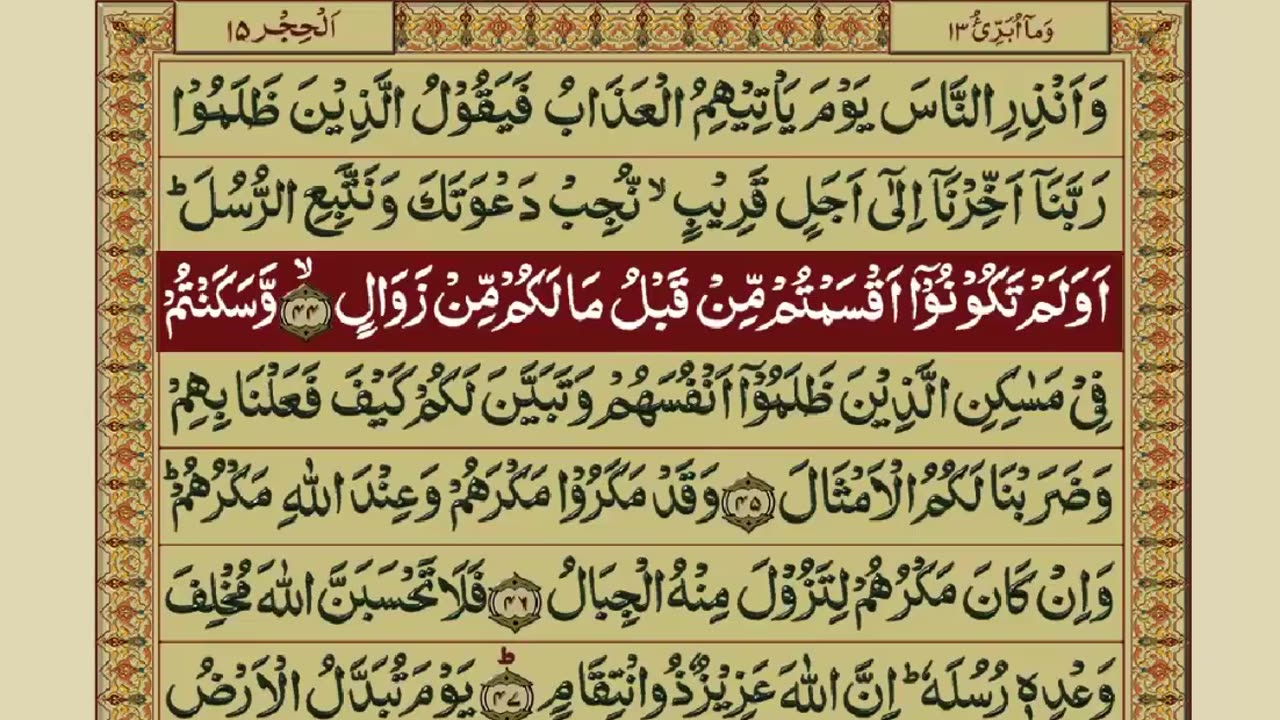 وَمَاۤ اُبَرِّئُ ١٣
اَلْحِجْر ١٥
وَاَنْذِرِ النَّاسَ يَوْمَ يَاْتِيْهِمُ الْعَذَابُ فَيَقُوْلُ الَّذِيْنَ ظَلَمُوْا
رَبَّنَاۤ اَخِّرْنَاۤ اِلٰۤى اَجَلٍ قَرِيْبٍ ۙ نُّجِبْ دَعْوَتَكَ وَنَتَّبِعِ الرُّسُلَ ؕ
اَوَلَمْ تَكُوْنُوْۤا اَقْسَمْتُمْ مِّنْ قَبْلُ مَا لَكُمْ مِّنْ زَوَالٍ ۙ ﴿۴۴﴾ وَّسَكَنْتُمْ
فِيْ مَسٰكِنِ الَّذِيْنَ ظَلَمُوْۤا اَنْفُسَهُمْ وَتَبَيَّنَ لَكُمْ كَيْفَ فَعَلْنَا بِهِمْ
وَضَرَبْنَا لَكُمُ الْاَمْثَالَ ﴿۴۵﴾ وَقَدْ مَكَرُوْا مَكْرَهُمْ وَعِنْدَ اللّٰهِ مَكْرُهُمْ ؕ
وَاِنْ كَانَ مَكْرُهُمْ لِتَزُوْلَ مِنْهُ الْجِبَالُ ﴿۴۶﴾ فَلَا تَحْسَبَنَّ اللّٰهَ مُخْلِفَ
وَعْدِهٖ رُسُلَهٗ ؕ اِنَّ اللّٰهَ عَزِيْزٌ ذُو انْتِقَامٍ ؕ ﴿۴۷﴾ يَوْمَ تُبَدَّلُ الْاَرْضُ